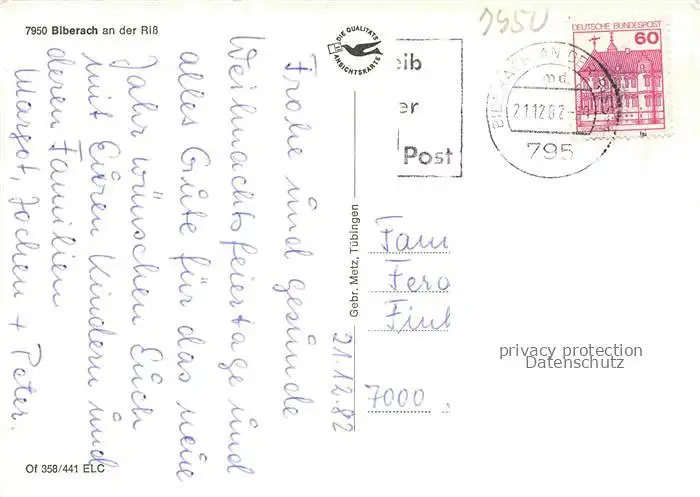 7950 Biberach an der Riß
7950
Frohe und gesunde
Weihnachtsfeiertage und
alles Gute für das neue
Jahr wünschen Euch
mit Euren Kindern und
deren Familien
Margot, Jochen + Peter.
21.12.82
DIE QUALITÄTS
ANSICHTSKARTE
Gebr. Metz, Tübingen
eib
er
Post
BIBERACH AN DER RISS
md
21.12.82
795
DEUTSCHE BUNDESPOST
60
Fam
7000
privacy protection
Datenschutz
Of 358/441 ELC